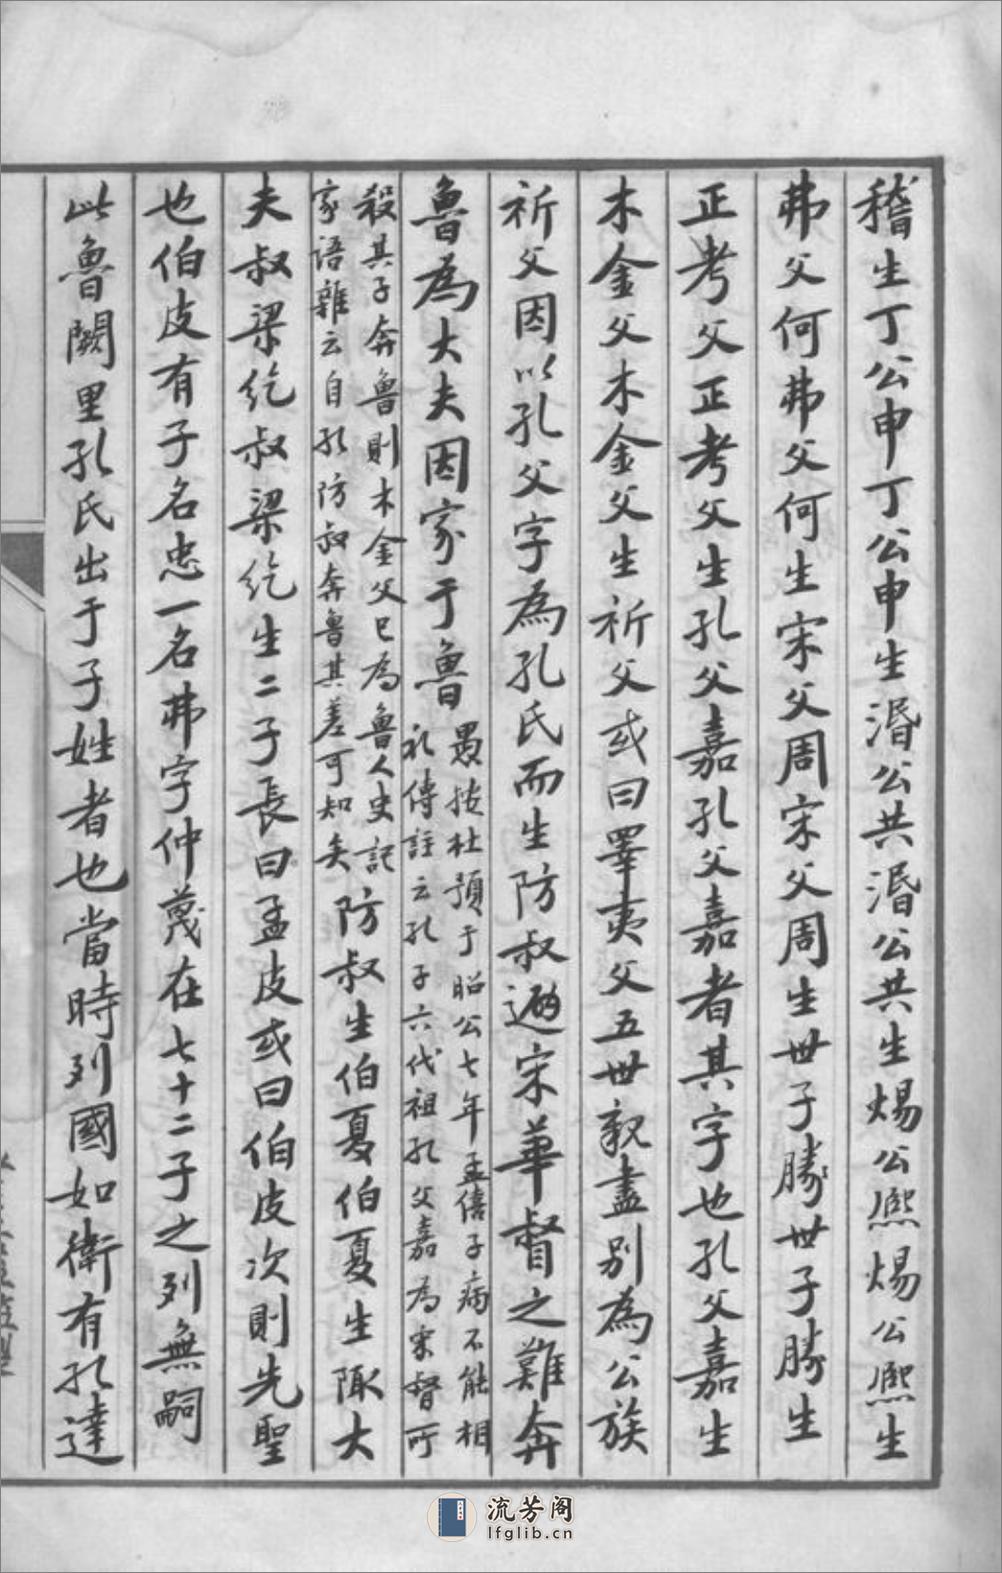 稽生丁公申丁公申生湣公共湣公共生煬公熙煬公熙生
弗父何弗父何生宋父周宋父周生世子勝世子勝生
正考父正考父生孔父嘉孔父嘉者其字也孔父嘉生
木金父木金父生祈父或曰睪夷父五世親盡別為公族
祈父因以孔父字為孔氏而生防叔遯宋華督之難奔
魯為大夫因家于魯
愚按杜預于昭公七年孟僖子病不能相
礼傳註云孔子六代祖孔父嘉為宋督所
殺其子奔魯則木金父已為魯人史記
家語雜云自孔防叔奔魯其差可知矣
防叔生伯夏伯夏生陬大
夫叔梁紇叔梁紇生二子長曰孟皮或曰伯皮次則先聖
也伯皮有子名忠一名弗字仲蔑在七十二子之列無嗣
此魯闕里孔氏出于子姓者也當時列國如衛有孔達
流芳阁
lfglib.cn